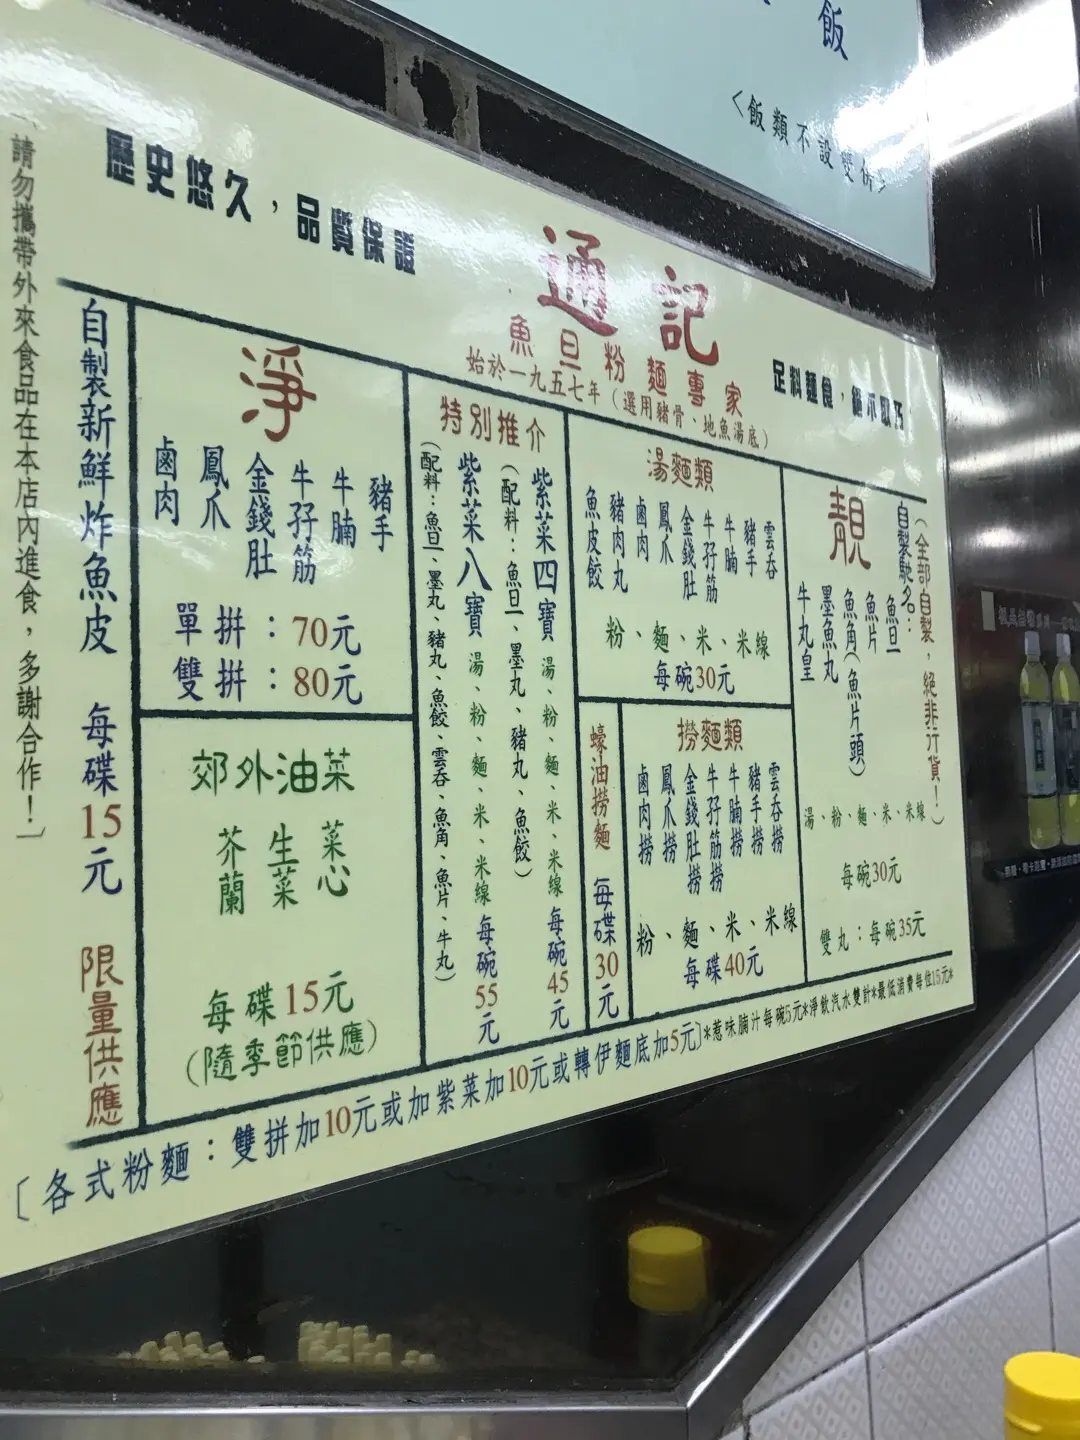 飯
<飯類不設雙併>
歷史悠久，品質保證
通記
魚旦粉麵專家
始於一九五七年（選用豬骨、地魚湯底）
足料麵食，絕不取巧
（全部自製，絕非行貨！）
自製馳名：
靚
魚旦
魚片
魚角(魚片頭)
墨魚丸
牛丸皇
湯、粉、麵、米、米線
每碗30元
雙丸：每碗35元
湯麵類
雲吞
豬手
牛腩
牛孖筋
金錢肚
鳳爪
鹵肉
豬肉丸
魚皮餃
粉、麵、米、米線
每碗30元
撈麵類
雲吞撈
豬手撈
牛腩撈
牛孖筋撈
金錢肚撈
鳳爪撈
鹵肉撈
粉、麵、米、米線
每碟40元
蠔油撈麵 每碟30元
特別推介
紫菜四寶 湯、粉、麵、米、米線 每碗45元
（配料：魚旦、墨丸、豬丸、魚餃）
紫菜八寶 湯、粉、麵、米、米線 每碗55元
（配料：魚旦、墨丸、豬丸、魚餃、雲吞、魚角、魚片、牛丸）
淨
豬手
牛腩
牛孖筋
金錢肚
鳳爪
鹵肉
單拼：70元
雙拼：80元
郊外油菜
菜心
生菜
芥蘭
每碟15元
(隨季節供應)
自製新鮮炸魚皮 每碟15元 限量供應
［請勿攜帶外來食品在本店內進食，多謝合作！］
［各式粉麵：雙拼加10元或加紫菜加10元或轉伊麵底加5元］*惹味腩汁每碗5元*淨飲汽水雙計*最低消費每位15元*